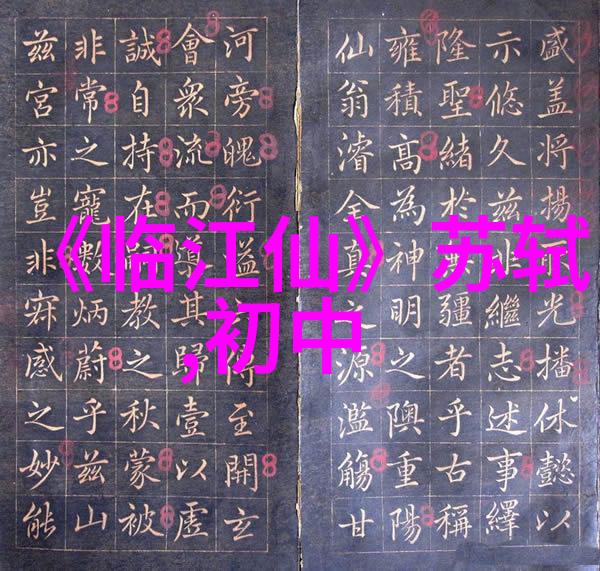 《临江仙》 苏轼
,初中
盛盖将揚光播休懿以
示悠久兹非繼志述事繹
隆聖緒於無疆者乎古稱
雍積高為神明之隩重陽
仙翁濬全真之源濫觴甘
河旁魄衍溢至開玄
會衆流而導其歸壹以虛
誠自持在教之秋蒙被
非常之寵數炳蔚乎兹山
兹宮亦豈非冥感之妙能